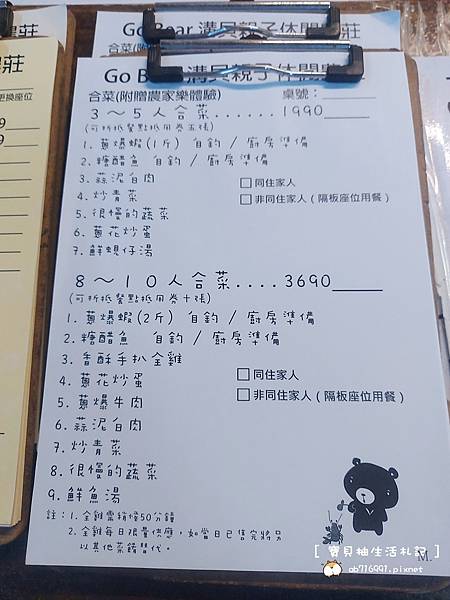 Go Bear 溝貝親子休閒農莊
合菜(附贈農家樂體驗)
Go Bear 溝貝親子休閒
莊
更換座位
合菜(附贈農家樂體驗) 桌號:
3～5人合菜......1990
(可折抵餐點抵用券五張)
1. 蔥爆蝦(1斤) 自釣 / 廚房準備
2. 糖醋魚 自釣 / 廚房準備
3. 蒜泥白肉
□同住家人
4. 炒青菜
□非同住家人(隔板座位用餐)
5. 很慢的蔬菜
6. 蔥花炒蛋
7. 鮮蜆仔湯
8～10人合菜....3690
(可折抵餐點抵用券十張)
1. 蔥爆蝦(2斤) 自釣 / 廚房準備
2. 糖醋魚 自釣 / 廚房準備
3. 香酥手扒全雞
4. 蔥花炒蛋
□同住家人
5. 蔥爆牛肉
□非同住家人(隔板座位用餐)
6. 蒜泥白肉
7. 炒青菜
8. 很慢的蔬菜
9. 鮮魚湯
註:1. 全雞需稍待50分鐘
2. 全雞每日限量供應,如當日已售完將另
以其他菜餚替代。
[ 寶貝柚生活札記 ]
M.
ab716991.pixnet